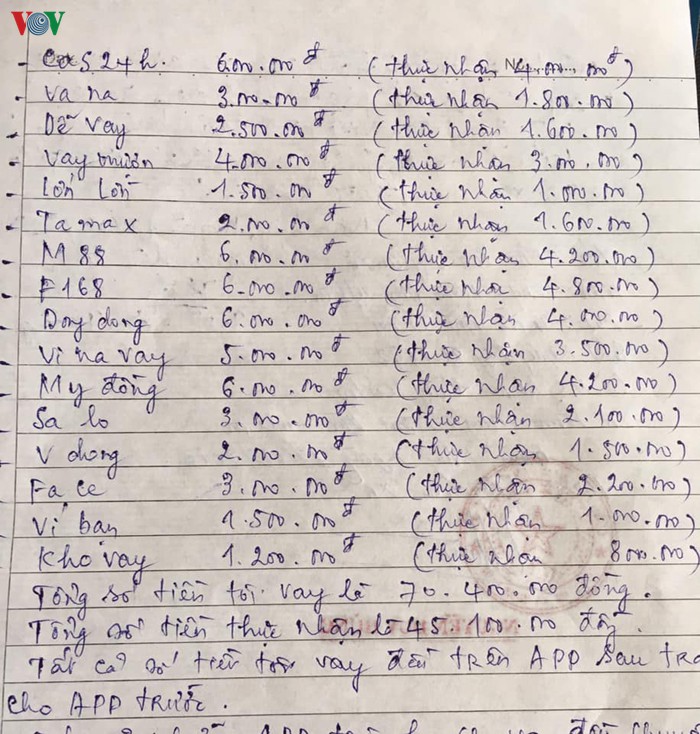 VOV
- Cas 24h. 6.000.000đ (thực nhận 4.000.000đ)
- Va na 3.000.000đ (thực nhận 1.800.000)
- Dễ vay 2.500.000đ (thực nhận 1.600.000)
- Vay mượn 4.000.000đ (thực nhận 3.000.000)
- Lớn Lớn 1.500.000đ (thực nhận 1.000.000)
- Ta ma x 2.000.000đ (thực nhận 1.600.000)
- M 88 6.000.000đ (thực nhận 4.200.000)
- F168 6.000.000đ (thực nhận 4.800.000)
Dong dong 6.000.000đ (thực nhận 4.000.000)
- Vi na vay 5.000.000đ (thực nhận 3.500.000)
- My đồng 6.000.000đ (thực nhận 4.200.000)
- Sa lo 3.000.000đ (thực nhận 2.100.000)
V dong 2.000.000đ (thực nhận 1.500.000)
Fa ce 3.000.000đ (thực nhận 2.200.000)
Vị bạn 1.500.000đ (thực nhận 1.000.000)
Kho vay 1.200.000đ (thực nhận 800.000)
Tổng số tiền tôi vay là 70.400.000 đồng.
Tổng số tiền thực nhận là 45.100.000 đồng.
Tất cả số tiền tôi vay đều trên APP sau trả
cho APP trước.